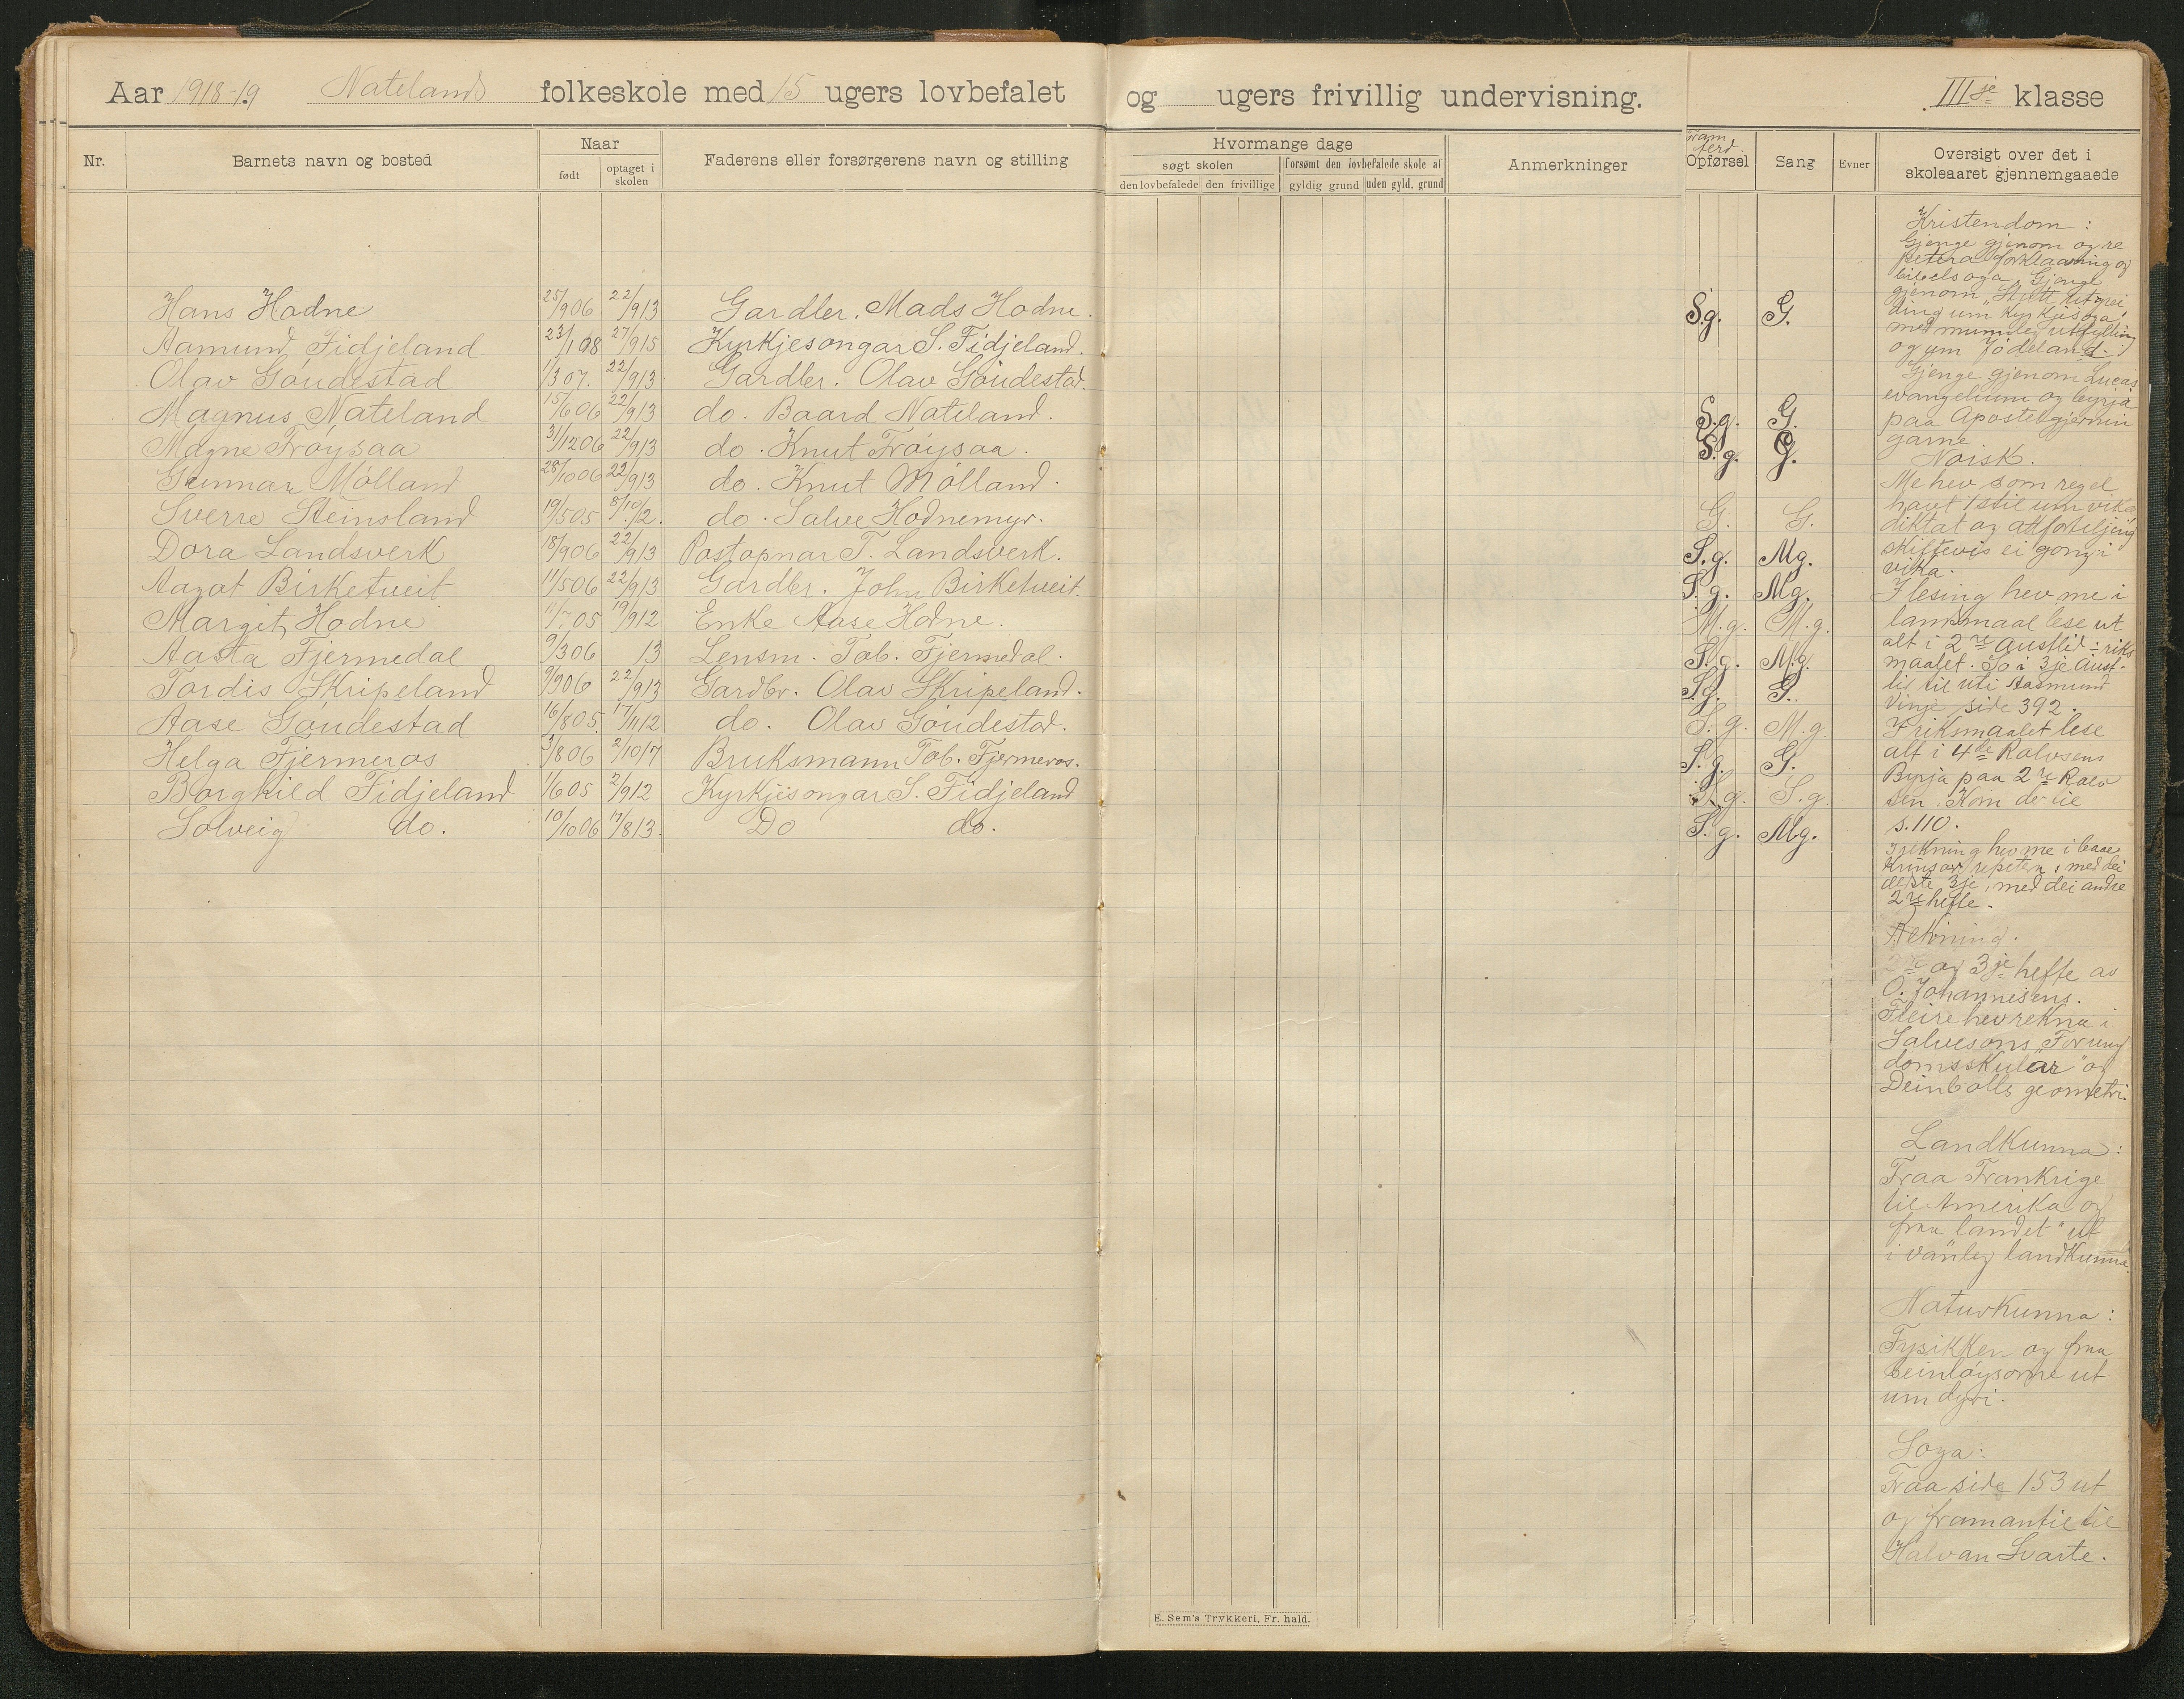 Aar 1918-19 Natelands folkeskole med 15 ugers lovbefalet og ugers frivillig undervisning. IIIje klasse
Nr. Barnets navn og bosted Naar født optaget i skolen Faderens eller forsørgerens navn og stilling
Hvormange dage
søgt skolen forsømt den lovbefalede skole af
den lovbefalede den frivillige gyldig grund uden gyld. grund
Anmerkninger
Framferd. Opførsel Sang Evner Oversigt over det i skoleaaret gjennemgaaede
Hans Hodne 25/906 22/913 Gardbr. Mads Hodne. S.g. G.
Aamund Fidjeland 23/108 27/915 Kyrkjesongar S. Fidjeland.
Olav Góudestad 1/307. 22/913 Gardbr. Olav Góudestad.
Magnus Nateland 15/606 22/913 do. Baard Nateland. S.g. G.
Magne Tróysaa 31/1206 22/913 do. Knut Tróysaa. S.g. G.
Gunnar Mólland 28/1006 22/913 do. Knut Mólland.
Sverre Steinsland 19/505 8/10 12. do. Salve Hodnemyr. G. G.
Dora Landsverk 18/906 22/913 Postopnar T. Landsverk. S.g. Mg.
Aagot Birketveit 11/506 22/913 Gardbr. John Birketveit. S.g. Mg.
Margit Hodne 11/705 19/912 Enke Aase Hodne. M.g. M.g.
Aasta Fjermedal 9/306 13 Lensm. Tob. Fjermedal. S.g. M.g.
Tordis Skripeland 9/906 22/913 Gardbr. Olav Skripeland. S.g. G.
Aase Góudestad 16/805. 17/1112 do. Olav Góudestad. S.g. M.g.
Helga Fjermeros 3/806 2/1017 Bruksmann Tob. Fjermeros. S.g. G.
Borghild Fidjeland 1/605 2/912 Kyrkjesongar S. Fidjeland S.g. S.g.
Solveig do. 10/1006 17/813. Do do. S.g. Mg.
Kristendom:
Gjenge gjenom og re
petera forklaaring og
bibelsoga. Gjenge
gjenom "Stutt utgrei
ding um kyrkjesoga"
med munnleg utfylling
og um Jödeland.
Gjenge gjenom Lucas
evangelium og byrja
paa Apostelgjernin
garne.
Norsk.
Me hev som regel
havt 1 stil um vika
diktat og attforteljing
skiftevis ei gong i
vika.
I lesing hev me i
landsmaal lese ut
alt i 2re Austlid i riks
maalet. So i 3je Aust-
lid til uti Aasmund
Vinje side 392.
I riksmaalet lese
alt i 4de Rolvsens
Byrja paa 2re Rolv
sen. Kom der til
s. 110.
I rekning hev me i baae
krinsar repetera, med dei
eldste 3je, med dei andre
2re hefte.
Rekning.
2re og 3je hefte av
O. Johannesens.
Fleire hev rekna i
Salvesons "For ung
domsskular" og
Deinbolls geometri.
Landkunna:
Fraa Frankrige
til Amerika og
fraa landet "ut
i vanleg landkunna.
Naturkunna:
Fysikken og fraa
beinlóysorne ut
um dyri.
Soga:
Fraa side 153 ut
og framantil til
Halvan Svarte.
E. Sem's Trykkeri, Fr. hald.